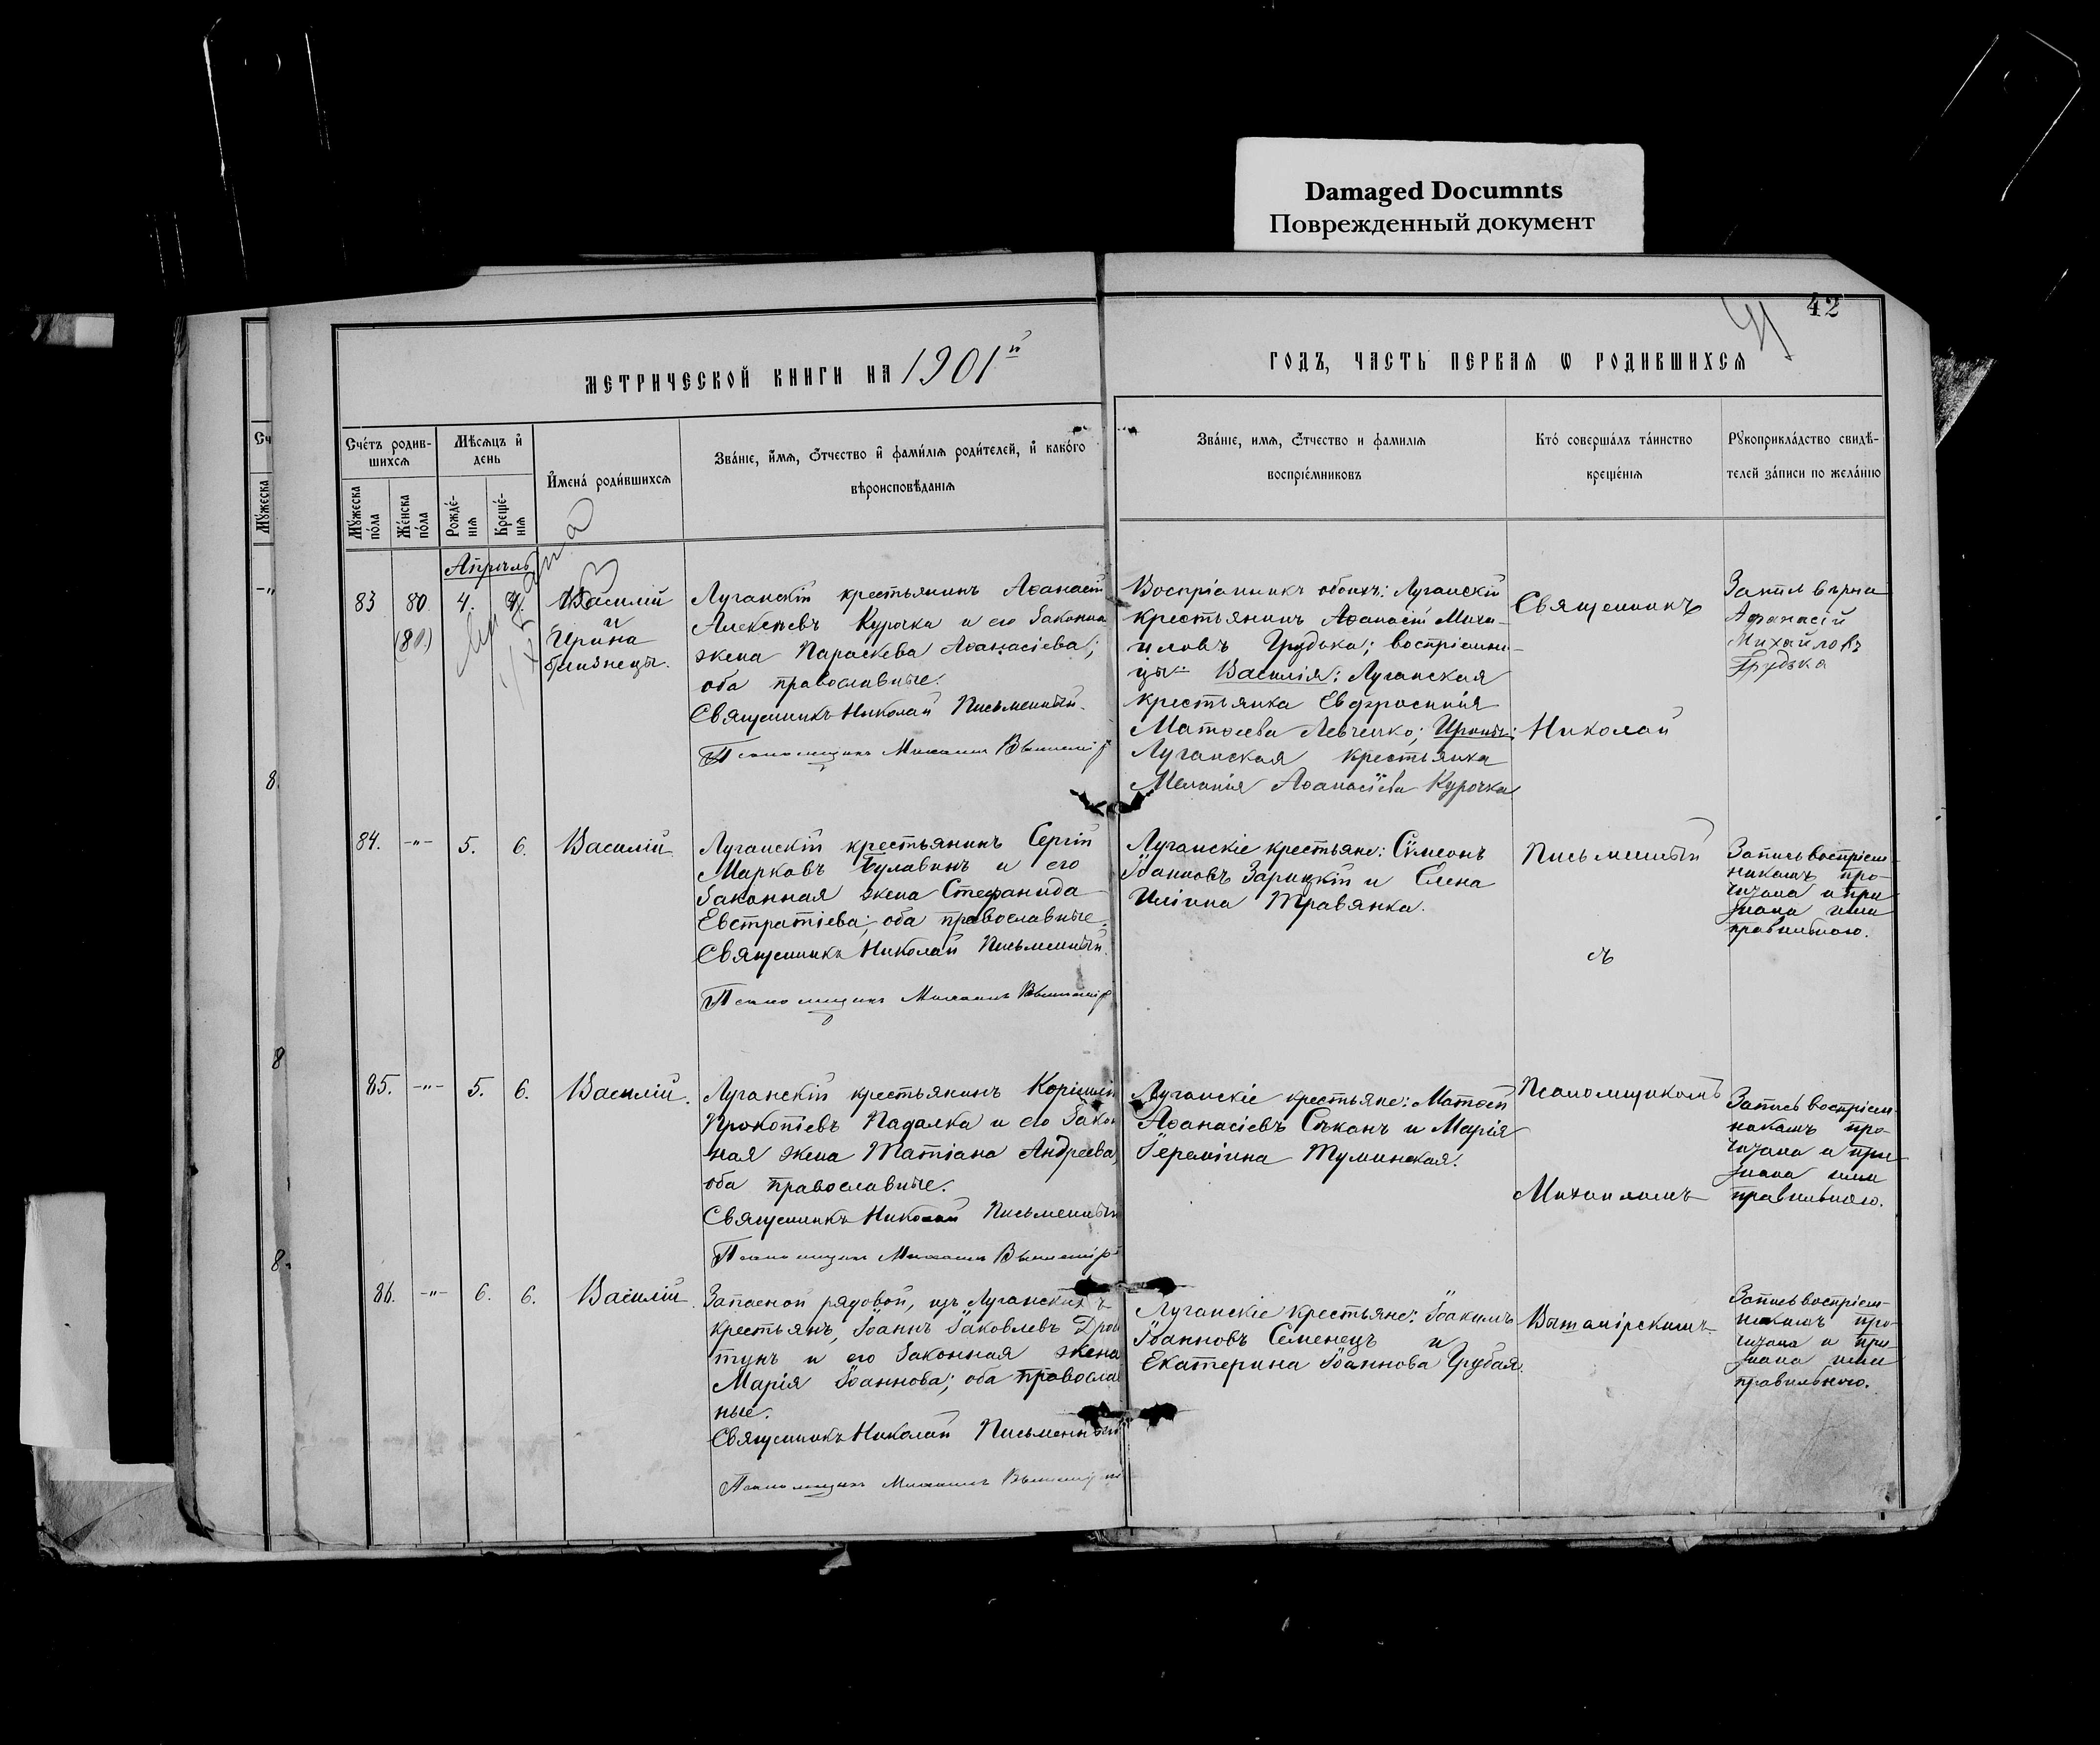 Damaged Documnts
Поврежденный документ
42
41
МЕТРИЧЕСКОЙ КНИГИ НА 1901й
ГОДЪ, ЧАСТЬ ПЕРВАЯ Ѡ РОДИВШИХСЯ
Сче́тъ родив-
шихся
Му́жеска по́ла
Же́нска по́ла
Мѣсяцъ и день
Рожде́-
нія
Креще́-
нія
Имена́ роди́вшихся
Зва́ніе, и́мя, ѻ́тчество и фами́лія роди́телей, и како́го
вѣроисповѣданія
Зва́ніе, имя, ѻ́тчество и фамилія
воспріе́мниковъ
Кто́ соверша́лъ та́инство
креще́нія
Рукоприкла́дство свидѣ-
телей за́писи по жела́нію
Апрѣль
83 80 4. 4. Василій
(80.) Ирина
близнецы.
Луганскій крестьянинъ Аѳанасій
Алексѣевъ Курочка и его законная
жена Параскева Аѳанасіева;
оба православные.
Священникъ Николай Письменный.
Псаломщикъ Михаилъ
Воспріемникъ обоихъ: Луганскій
крестьянинъ Аѳанасій Миха-
иловъ Грудька; воспріемни-
цы: Василія: Луганская
крестьянка Евфросинія
Матѳеева Левченко; Ирины:
Луганская крестьянка
Меланія Аѳанасіева Курочка
Священникъ
Николай
Запис вѣрна
Афанасій
Михайловъ
Грудька
84. -"- 5. 6. Василій
Луганскій крестьянинъ Сергій
Марковъ Булавинъ и его
законная жена Стефанида
Евстратіева; оба православные.
Священникъ Николай Письменный.
Псаломщикъ Михаилъ
Луганскіе крестьяне: Сѵмеонъ
Іоанновъ Зарицкій и Елена
Иліина Травянка.
Письменный
съ
Запись воспріем-
никамъ про-
читана и при-
знана ими
правильною.
85. -"- 5. 6. Василій.
Луганскій крестьянинъ Корнилій
Прокопіевъ Падалка и его закон
ная жена Татіана Андреева,
оба православные.
Священникъ Николай Письменный
Псаломщикъ Михаилъ
Луганскіе крестьяне: Матѳей
Аѳанасіевъ Сѣканъ и Марія
Іереміина Туминская.
Псаломщикомъ
Михаиломъ
Запись воспріем-
никамъ про-
читана и при-
знана ими
правильною.
86. -"- 6. 6. Василій.
Запасной рядовой, изъ Луганскихъ
крестьянъ, Іоаннъ Іаковлевъ
тунъ и его законная жена
Марія Іоаннова; оба православ
ные.
Священникъ Николай Письменный
Псаломщикъ Михаилъ
Луганскіе крестьяне: Іоакимъ
Іоанновъ Семенецъ и
Екатерина Іоаннова Грубая.
Запись воспріем-
никамъ про-
читана и при-
знана ими
правильною.